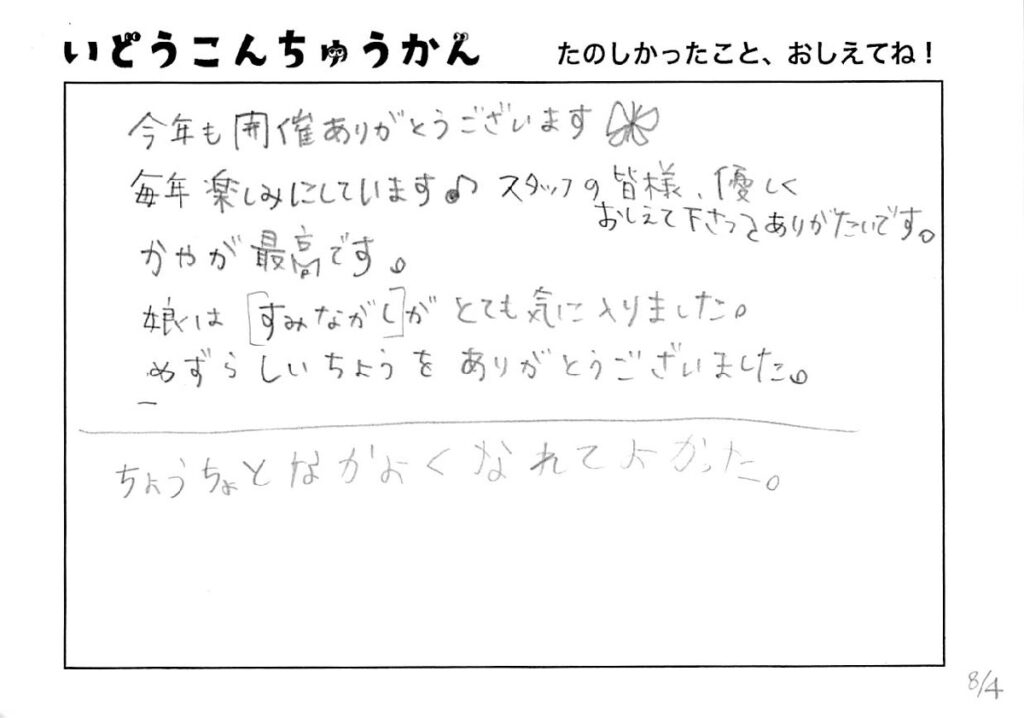 いどうこんちゅうかん
たのしかったこと、おしえてね！
今年も開催ありがとうございます
毎年楽しみにしています♪ スタッフの皆様、優しく
おしえて下さってありがたいです。
かやが最高です。
娘は[すみながし]がとても気に入りました。
めずらしいちょうをありがとうございました。
ちょうちょとなかよくなれてよかった。
8/4